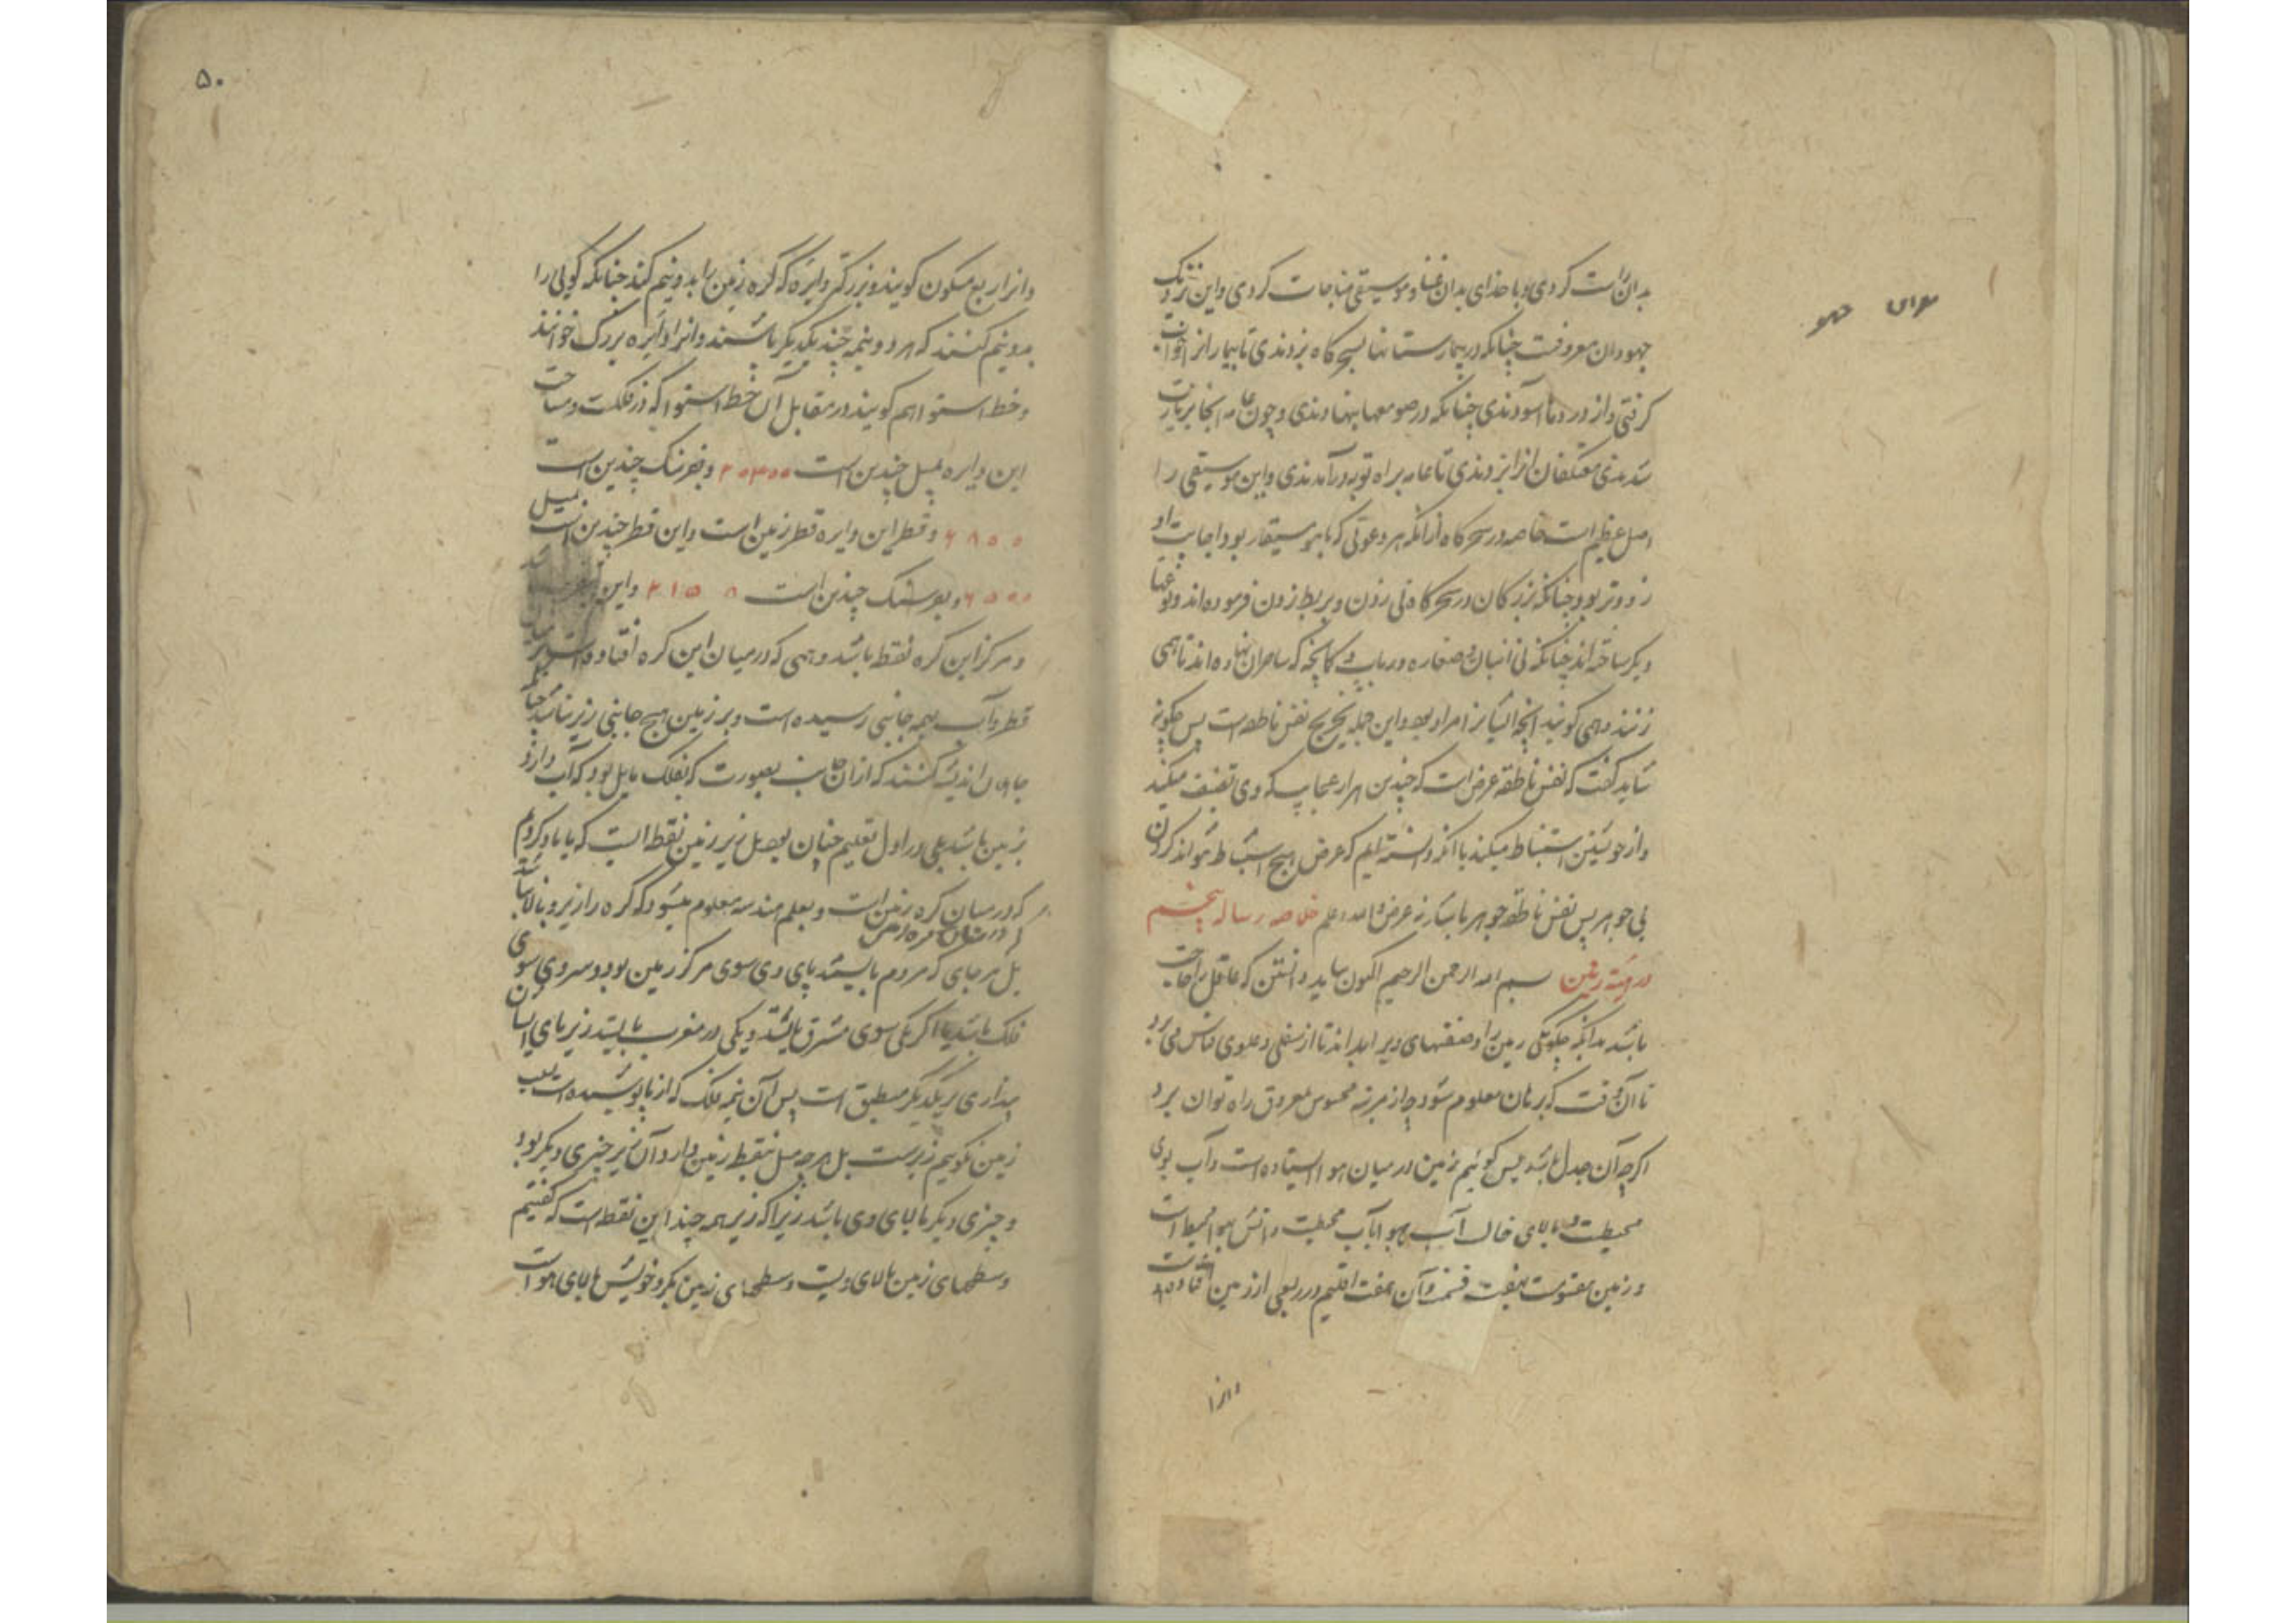 بدان است کردی و با خدای بدان غنا و موسیقی مناجات کردی و این نزدیک
جهودان معروفست چنانکه در بیمارستانها بسحرگاه بزدندی تا بیمار از خواب
گرفتی و از دردها آسودندی چنانکه در صومعها بنهادندی و چون عامه آنجا بزیارت
شدندی معتکفان آنرا بزدندی تا عامه براه توبه درآمدندی و این موسیقی را
اصل عظیم است خاصه در سحرگاه از آنکه هر دعوتی که با موسیقار بود اجابت او
زودتر بود چنانکه بزرگان در سحرگاه نی زدن و بربط زدن فرموده‌اند و نوعها
دیگر ساخته‌اند چنانکه نی انبان و صفاره و رباب و کمانچه که ساحران نهاده‌اند تا همی
زنند و همی گویند آنچه ایشانرا مراد بود و این جمله تخریج نفس ناطقه است پس چگونه
شاید گفت که نفس ناطقه عرض است که چندین هزار عجایب که وی تصنیف میکند
و از خویشتن استنباط میکند با آنکه دانسته‌ایم که عرض هیچ استنباط نتواند کردن
بی جوهر پس نفس ناطقه جوهر باشد نه عرض والله اعلم خلاصه رساله پنجم
در هیئة زمین بسم الله الرحمن الرحیم اکنون بباید دانستن که عاقل را حاجت
باشد بدانکه چگونگی زمین را و صفتهای ویرا بداند تا از سفلی و علوی قیاس می‌برد
تا آن وقت که برهان معلوم شود و از مرتبه محسوس بمعروف راه توان برد
اگرچه آن جدل باشد پس گوئیم زمین در میان هوا ایستاده است و آب بوی
محیطست و بالای خاک آب و هوا بآب محیطست و آتش بهوا محیط است
و زمین مقسومست بهفت قسمت و آن هفت اقلیم در ربعی از زمین افتاده است
وانرا
۵۰
وانرا ربع مسکون گویند و بزرگتر دایره که کره زمین را بدو نیم کند چنانکه گویی را
بدو نیم کنند که هر دو نیمه چند یکدیگر باشند و آنرا دایره بزرگ خوانند
و خط استوا هم گویند در مقابل آن خط استوا که در فلکست و مساحت
این دایره بمیل چندین است ۲۰۴۰۰ و بفرسنگ چندین است
۶۸۰۰ و قطر این دایره قطر زمین است و این قطر چندین است بمیل
۶۵۰۰ و بفرسنگ چندین است ۲۱۵۸ و این
و مرکز این کره نقطه باشد وهمی که در میان این کره افتاده است
قطر و آب بهمه جانبی رسیده است و بر زمین هیچ جانبی زیر نباشد چنانکه
جاهلان اندیشه کنند که از آن جانب بصورت که بفلک مایل بود که آب دارد
زمین باشد بلی در اول تعلیم چنان بود بل زیر زمین نقطه ایست که یاد کردیم
که در میان کره زمین است و بعلم هندسه معلوم میشود که کره را زیر و بالا نباشد
که در میان کره ارض
بل هر جای که مردم بایستد پای وی سوی مرکز زمین بود و سر وی سوی
فلک باشد یا اگر یکی سوی مشرق بایستد و یکی در مغرب بایستد زیر پای ایشان
پنداری بر یکدیگر منطبق است پس آن نیمه فلک که از ما پوشیده است بسبب
زمین نگوییم زیرست بل هر چه میل بنقطه زمین دارد آن زیر چیزی دیگر بود
و چیزی دیگر بالای وی باشد زیرا که زیر همه چیز این نقطه است که گفتیم
و سطحهای زمین بالای ویست و سطحهای زمین بگرد خویش بالای هواست